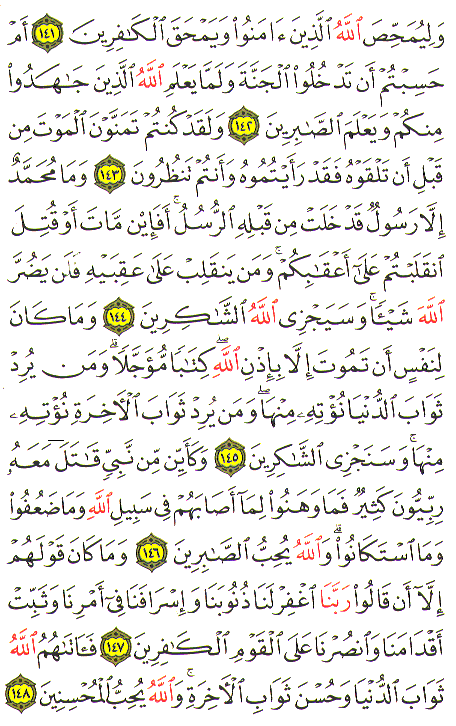 وَلِيُمَحِّصَ ٱللَّهُ ٱلَّذِينَ ءَامَنُوا۟ وَيَمْحَقَ ٱلْكَـٰفِرِينَ ١٤١ أَمْ
حَسِبْتُمْ أَن تَدْخُلُوا۟ ٱلْجَنَّةَ وَلَمَّا يَعْلَمِ ٱللَّهُ ٱلَّذِينَ جَـٰهَدُوا۟
مِنكُمْ وَيَعْلَمَ ٱلصَّـٰبِرِينَ ١٤٢ وَلَقَدْ كُنتُمْ تَمَنَّوْنَ ٱلْمَوْتَ مِن
قَبْلِ أَن تَلْقَوْهُ فَقَدْ رَأَيْتُمُوهُ وَأَنتُمْ تَنظُرُونَ ١٤٣ وَمَا مُحَمَّدٌ
إِلَّا رَسُولٌ قَدْ خَلَتْ مِن قَبْلِهِ ٱلرُّسُلُ ۚ أَفَإِي۟ن مَّاتَ أَوْ قُتِلَ
ٱنقَلَبْتُمْ عَلَىٰٓ أَعْقَـٰبِكُمْ ۚ وَمَن يَنقَلِبْ عَلَىٰ عَقِبَيْهِ فَلَن يَضُرَّ
ٱللَّهَ شَيْـًٔا ۗ وَسَيَجْزِى ٱللَّهُ ٱلشَّـٰكِرِينَ ١٤٤ وَمَا كَانَ
لِنَفْسٍ أَن تَمُوتَ إِلَّا بِإِذْنِ ٱللَّهِ كِتَـٰبًا مُّؤَجَّلًا ۗ وَمَن يُرِدْ
ثَوَابَ ٱلدُّنْيَا نُؤْتِهِۦ مِنْهَا ۖ وَمَن يُرِدْ ثَوَابَ ٱلْـَٔاخِرَةِ نُؤْتِهِۦ
مِنْهَا ۚ وَسَنَجْزِى ٱلشَّـٰكِرِينَ ١٤٥ وَكَأَيِّن مِّن نَّبِىٍّ قَـٰتَلَ مَعَهُۥ
رِبِّيُّونَ كَثِيرٌ فَمَا وَهَنُوا۟ لِمَآ أَصَابَهُمْ فِى سَبِيلِ ٱللَّهِ وَمَا ضَعُفُوا۟
وَمَا ٱسْتَكَانُوا۟ ۗ وَٱللَّهُ يُحِبُّ ٱلصَّـٰبِرِينَ ١٤٦ وَمَا كَانَ قَوْلَهُمْ
إِلَّآ أَن قَالُوا۟ رَبَّنَا ٱغْفِرْ لَنَا ذُنُوبَنَا وَإِسْرَافَنَا فِىٓ أَمْرِنَا وَثَبِّتْ
أَقْدَامَنَا وَٱنصُرْنَا عَلَى ٱلْقَوْمِ ٱلْكَـٰفِرِينَ ١٤٧ فَـَٔاتَىٰهُمُ ٱللَّهُ
ثَوَابَ ٱلدُّنْيَا وَحُسْنَ ثَوَابِ ٱلْـَٔاخِرَةِ ۗ وَٱللَّهُ يُحِبُّ ٱلْمُحْسِنِينَ ١٤٨